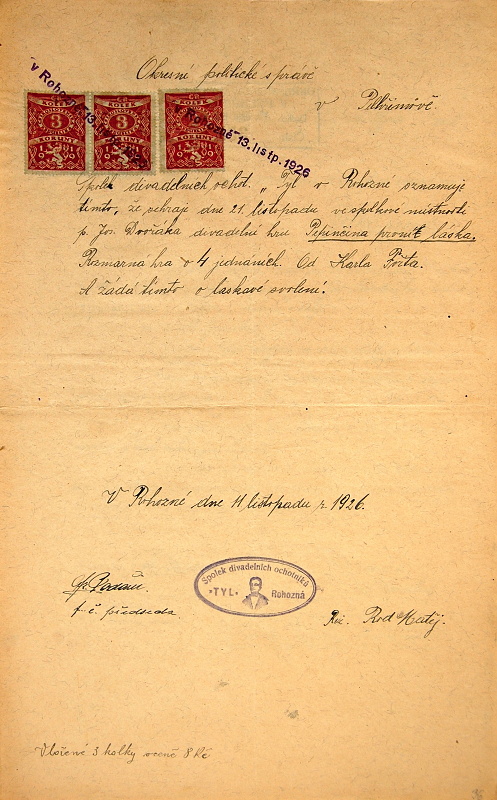 Okresní politické správě
v Pelhřimově.
v Rohozné 13. listp. 1926
v Rohozné 13. listp. 1926
KOLEK
3
KORUNY
1919
KOLEK
3
KORUNY
1919
KOLEK
KORUNY
Spolek divadelních ochot. „Tyl v Rohozné oznamuje
tímto, že sehraje dne 21. listopadu ve spolkové místnosti
p. Jos. Dvořáka divadelní hru Pepinčina první láska.
Rozmarna hra o 4 jednáních. Od Karla Fořta.
A žádá tímto o laskavé svolení.
V Rohozné dne 11 listopadu r. 1926.
Spolek divadelních ochotníků
"TYL" Rohozná
t. č. předseda
Rod Matěj.
Vložené 3 kolky v ceně 8 Kč